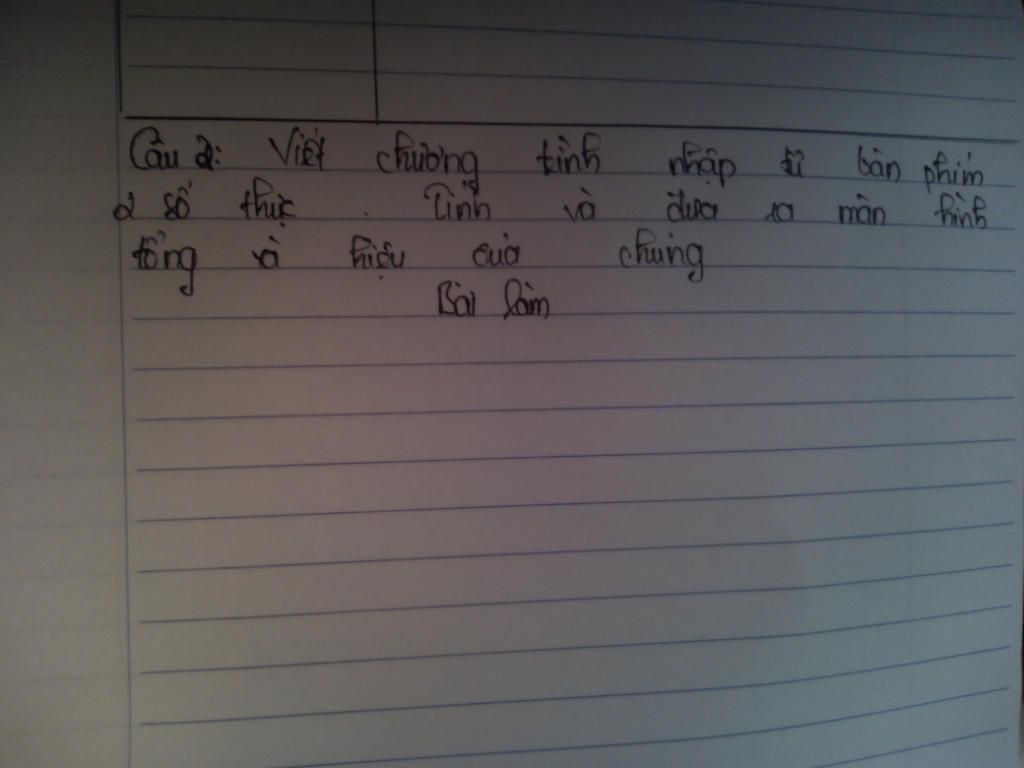 Câu 2: Viết chương trình nhập từ bàn phím
2 số thực. Tính và đưa ra màn hình
tổng và hiệu của chúng
Bài làm